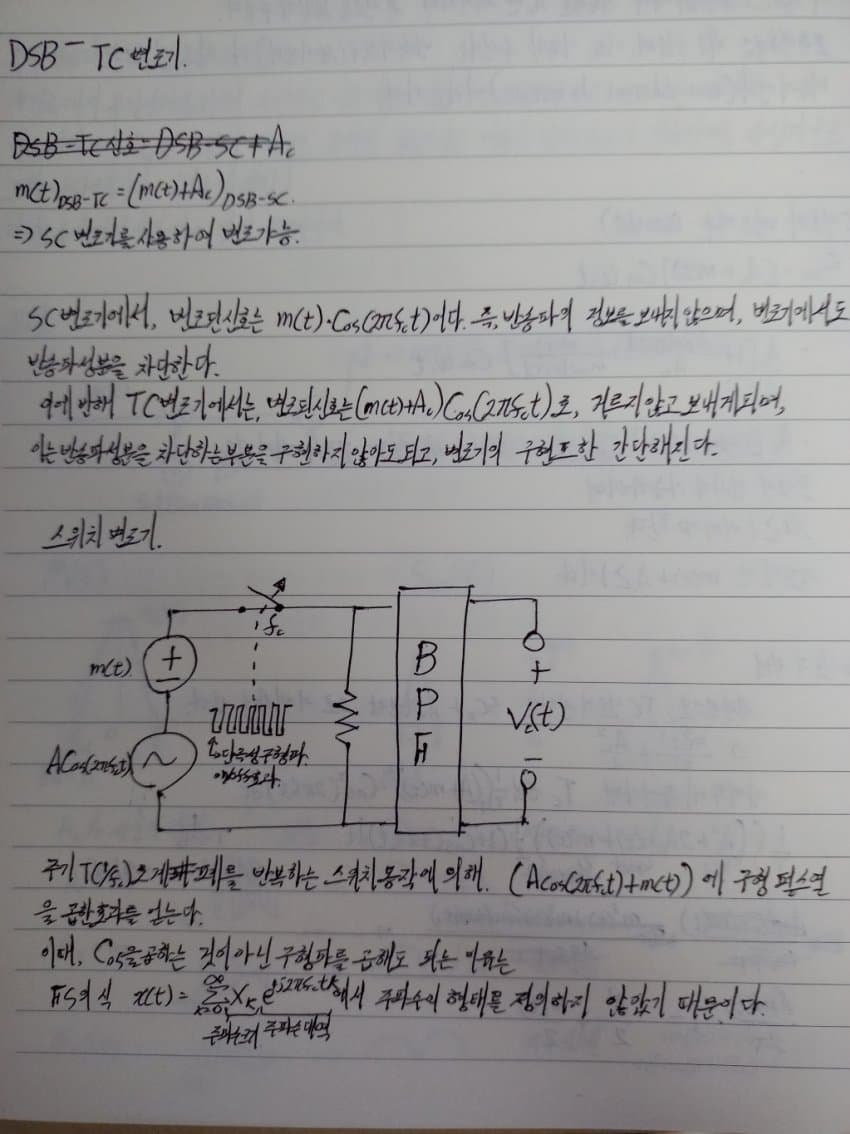 DSB- TC 변조기.
DSB-TC신호=DSB-SC+Ac
m(t)DSB-TC=(m(t)+Ac)DSB-SC.
⇒ SC 변조기를 사용하여 변조가능.
SC변조기에서, 변조된신호는 m(t)·Cos(2πfct)이다. 즉, 반송파의 정보를 보내지 않으며, 변조기에서도
반송파성분을 차단한다.
이에 반해 TC변조기에서는, 변조된신호는(m(t)+Ac)Cos(2πfct)로, 거르지않고 보내게되며,
이는반송파성분을 차단하는부분을 구현하지 않아도되고, 변조기의 구현또한 간단해진다.
스위치 변조기.
fc
m(t)
+
-
B
P
F
+
Vc(t)
-
ACos(2πfct)
단극성구형파.
주기 T(1/fc)로 개폐를 반복하는 스위치동작에 의해. (ACos(2πfct)+m(t))에 구형 펄스열
을 곱한효과를 얻는다.
이때, Cos을곱하는 것이아닌 구형파를 곱해도 되는 이유는
FS의식 x(t)= ∑ Xk e^j2πfctk 에서 주파수의 형태를 정의하지 않았기 때문이다.
주파수크기 주파수대역